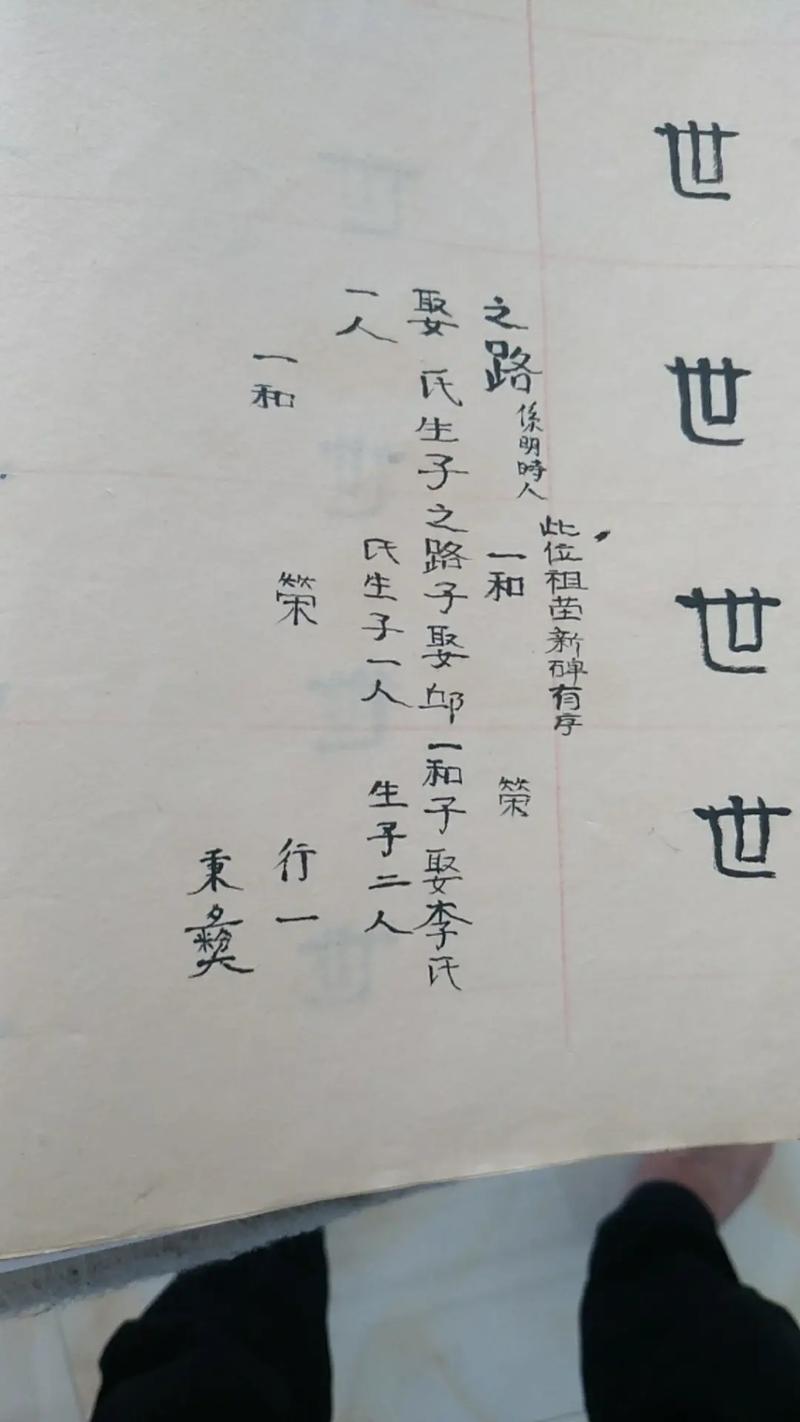 世 世 世 世
此位祖茔新碑有序
之路 係明時人 一和 榮
娶 氏生子之路子娶邱一和子娶李氏
一人 氏生子一人 生子二人
一和 榮 行一
秉